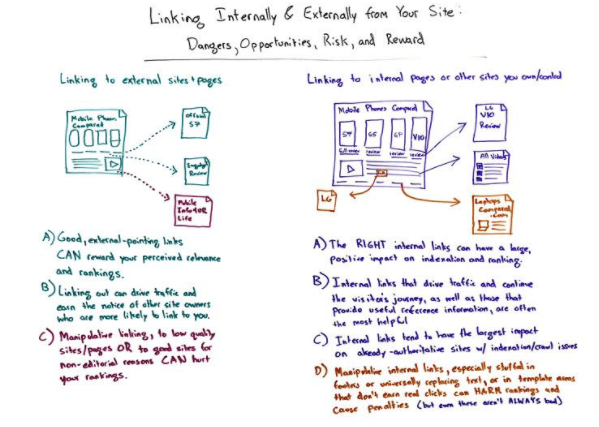 Linking Internally & Externally from Your Site:
Dangers, Opportunities, Risk, and Reward
Linking to external sites + pages
Mobile Phones
Compared
Official
S7
Engadget
Review
Mobile
Info4UR
Life
A) Good, external-pointing links
CAN reward your perceived relevance
and rankings.
B) Linking out can drive traffic and
earn the notice of other site owners
who are more likely to link to you.
C) Manipulative linking, to low quality
sites/pages OR to good sites for
non-editorial reasons CAN hurt
your rankings.
Linking to internal pages or other sites you own/control
Mobile Phones Compared
S7
G5
6P
V10
full review
review
review
review
LG
V10
Review
All Videos
LG
Laptops
Compared
.com
A) The RIGHT internal links can have a large,
positive impact on indexation and ranking.
B) Internal links that drive traffic and continue
the visitor's journey, as well as those that
provide useful reference information, are often
the most helpful
C) Internal links tend to have the largest impact
on already-authoritative sites w/ indexation/crawl issues
D) Manipulative internal links, especially stuffed in
footers or universally replacing text, or in template areas
that don't earn real clicks can HARM rankings and
cause penalties (but even these aren't ALWAYS bad)